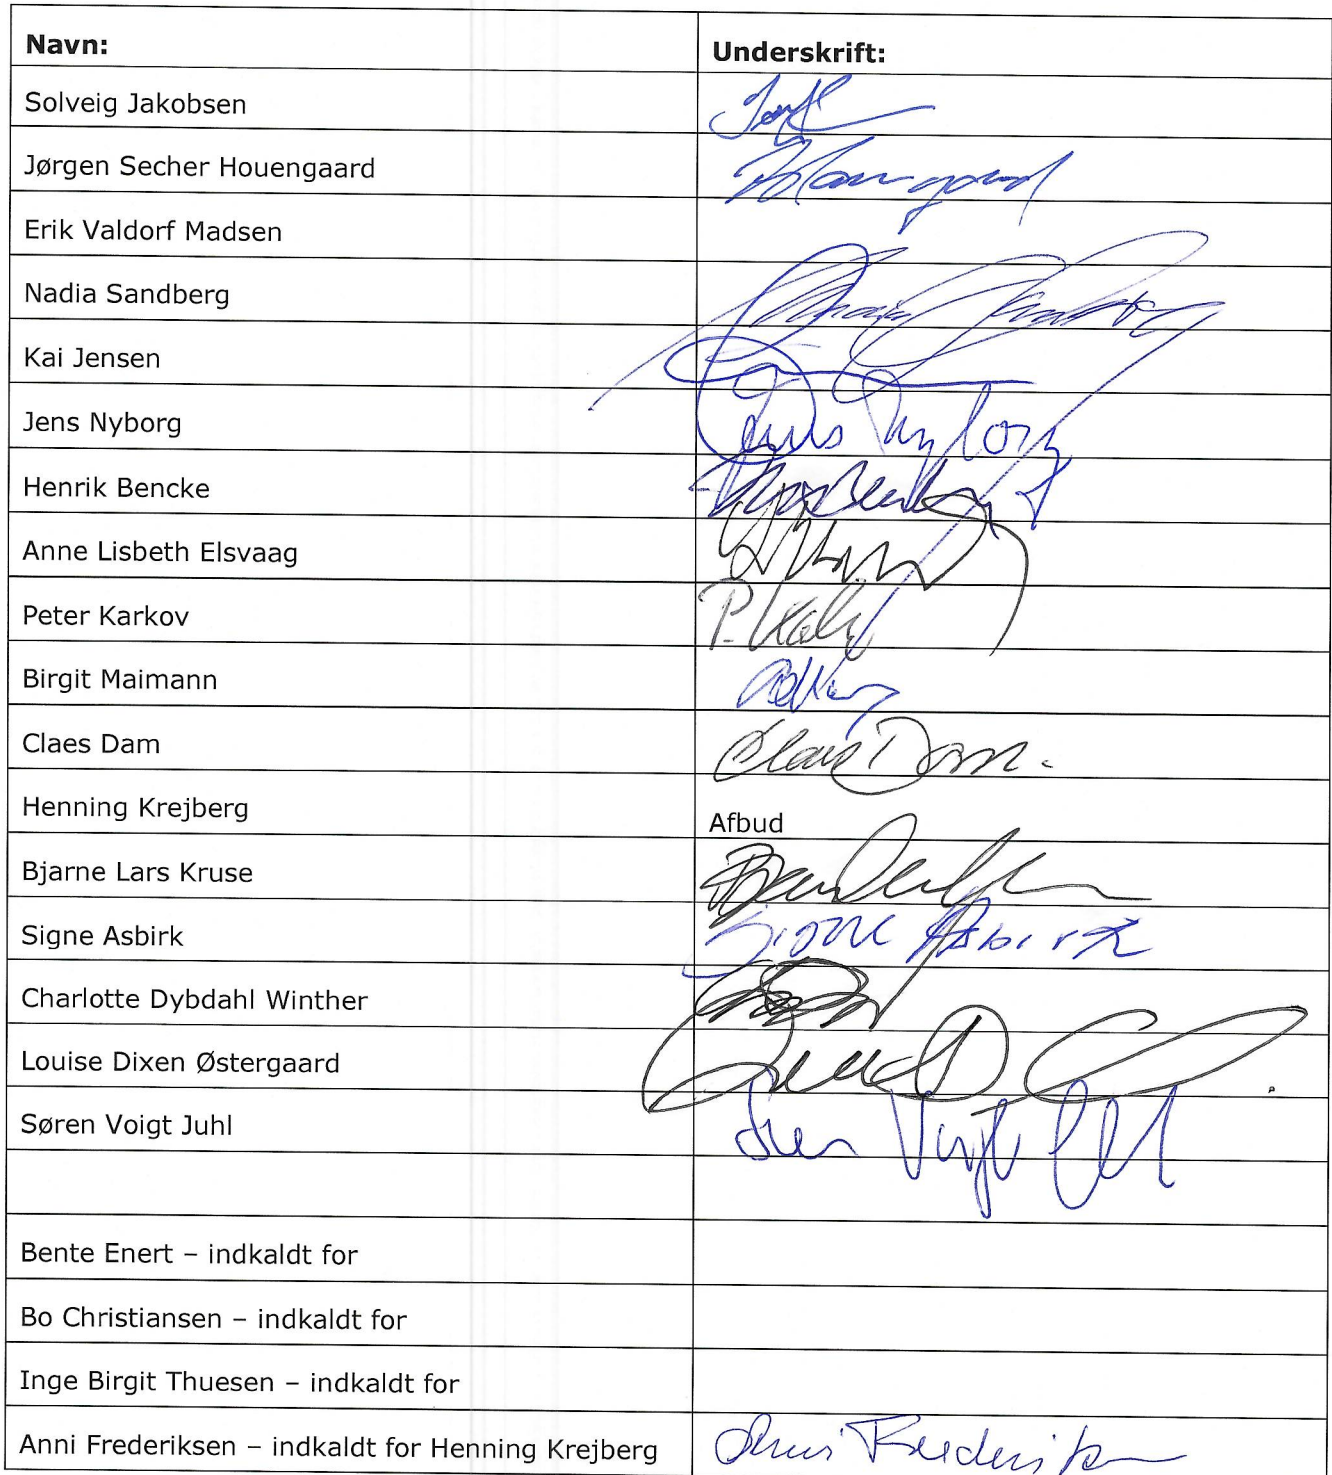 Navn: Underskrift:
Solveig Jakobsen
Jørgen Secher Houengaard
Erik Valdorf Madsen
Nadia Sandberg
Kai Jensen
Jens Nyborg Jens Nyborg
Henrik Bencke
Anne Lisbeth Elsvaag
Peter Karkov
Birgit Maimann
Claes Dam Claes Dam
Henning Krejberg Afbud
Bjarne Lars Kruse
Signe Asbirk Signe Asbirk
Charlotte Dybdahl Winther
Louise Dixen Østergaard
Søren Voigt Juhl Søren Voigt Juhl
Bente Enert – indkaldt for
Bo Christiansen – indkaldt for
Inge Birgit Thuesen – indkaldt for
Anni Frederiksen – indkaldt for Henning Krejberg Anni Frederiksen